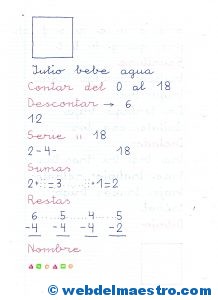 Julio bebe agua
Contar del 0 al 18
Descontar → 6
12
Serie 18
2-4- 18
Sumas
2+ =3 +1=2
Restas
6 5 4 5
-4 -4 -4 -2
Nombre
© webdelmaestro.com